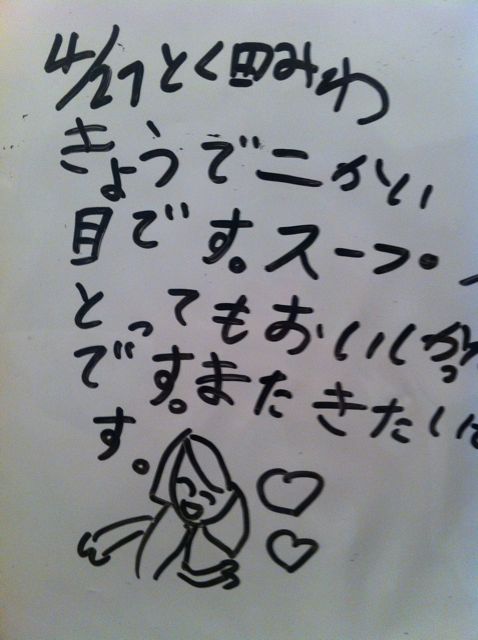 4/27とく田みわ
きょうで二かい
目です。スープ
とってもおいしかっ
です。またきたいで
す。